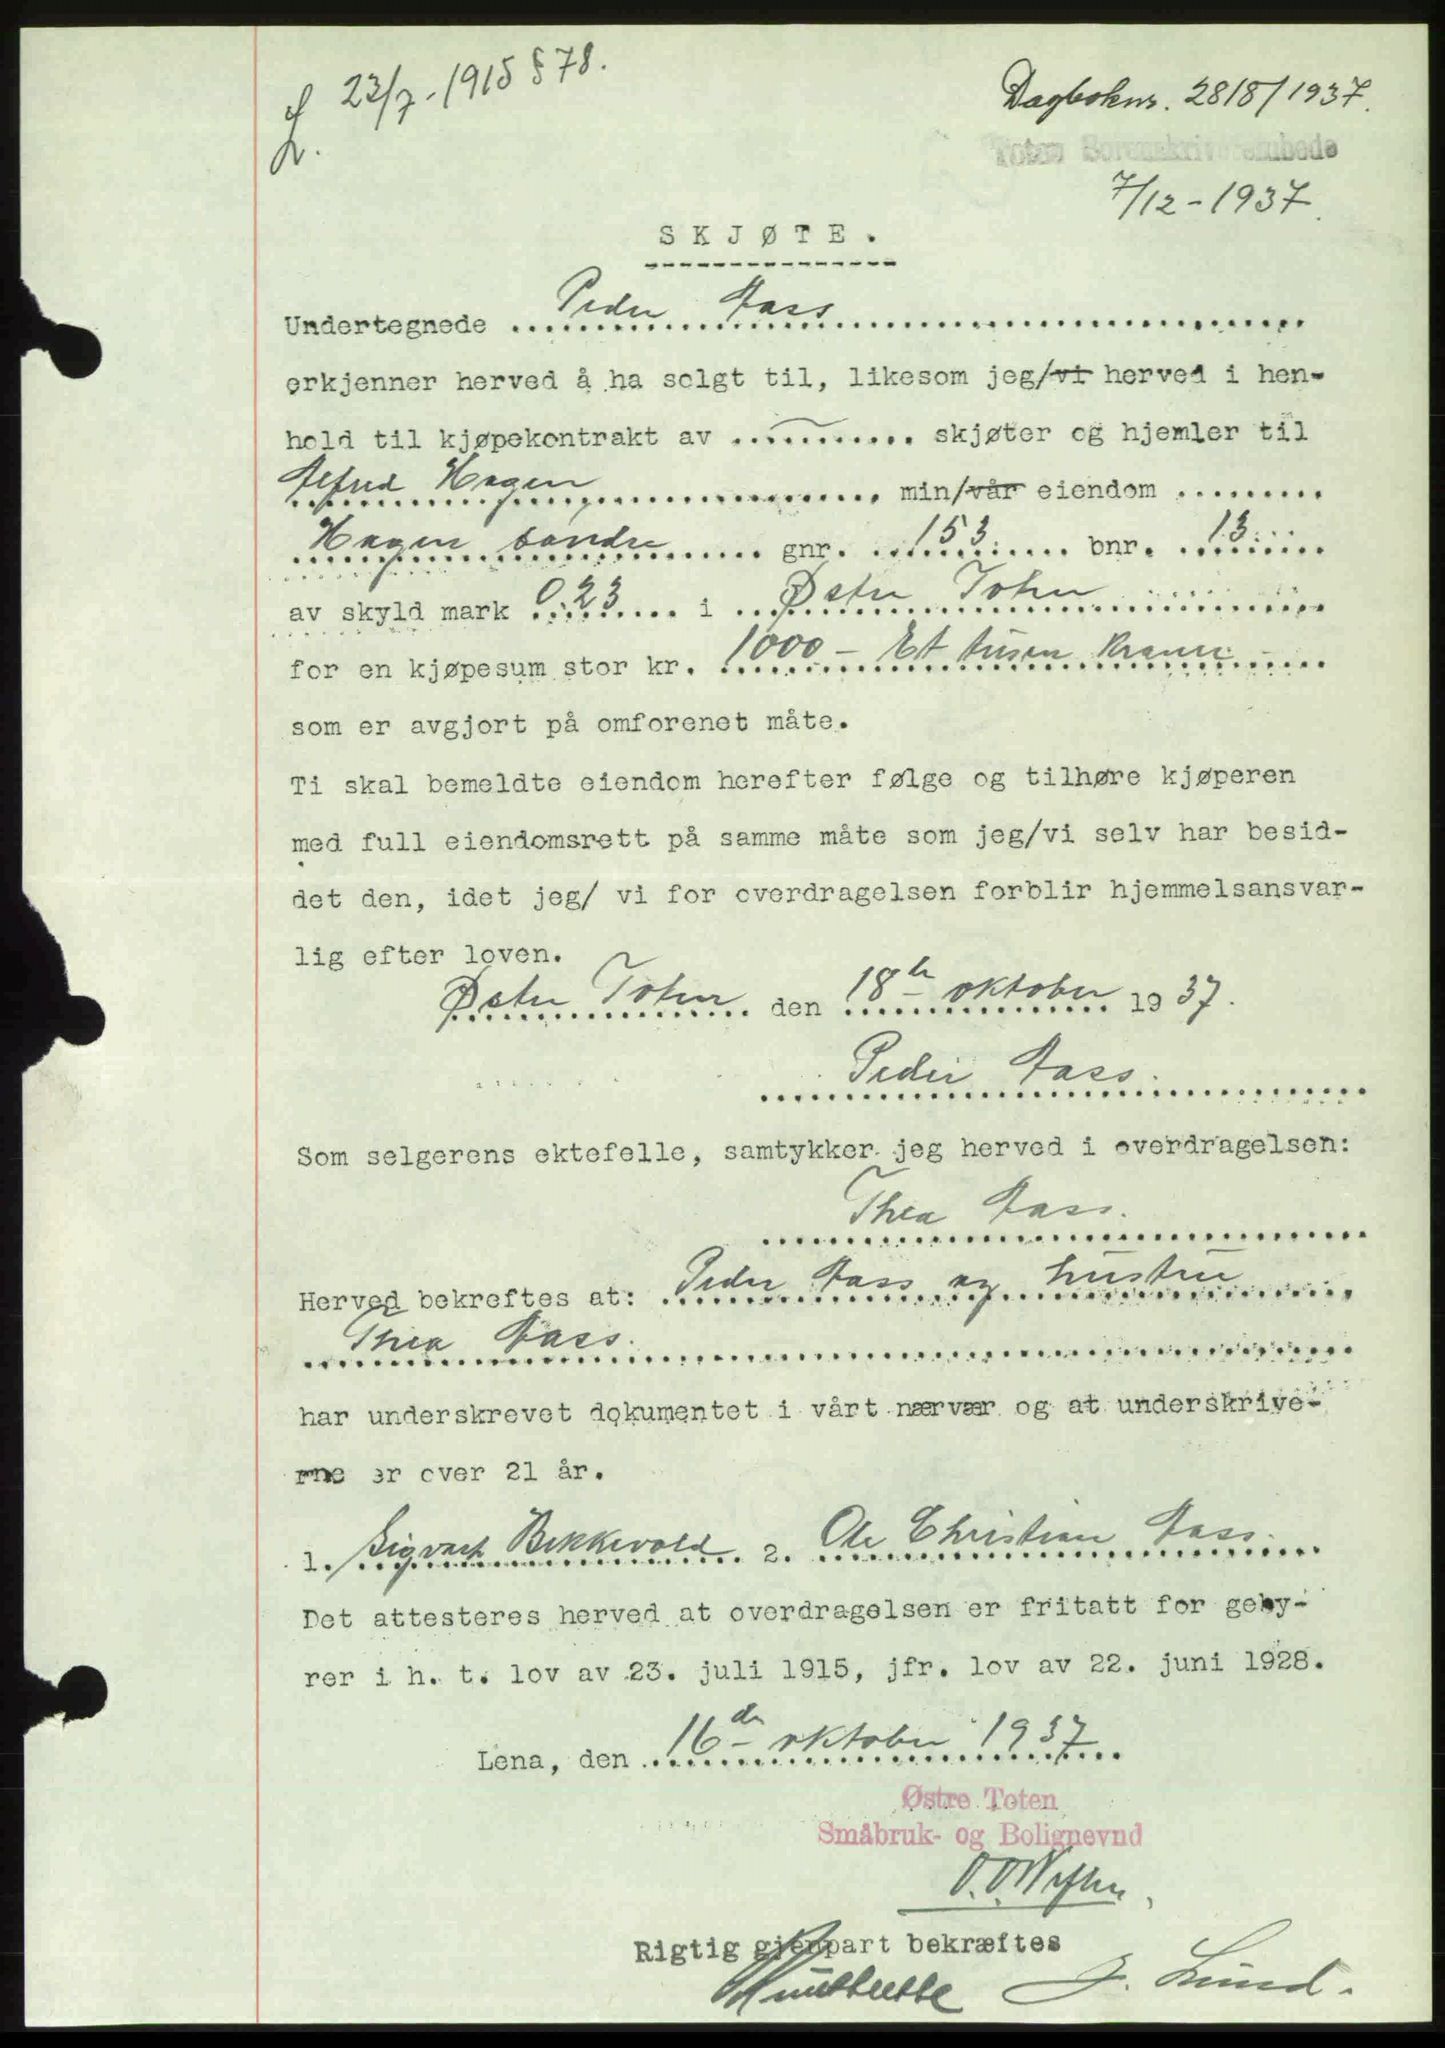 L. 23/7-1915 § 78.
Dagboknr. 2818/1937.
Toten Sorenskriverembede
7/12-1937.
SKJØTE.
Undertegnede Peder Aass
erkjenner herved å ha solgt til, likesom jeg/vi herved i hen-
hold til kjøpekontrakt av ........... skjøter og hjemler til
Alfred Hagen min/vår eiendom .........
Hagen søndre gnr. 153 bnr. 13
av skyld mark 0.23 i Østre Toten
for en kjøpesum stor kr. 1000 - Et tusen kroner -
som er avgjort på omforenet måte.
Ti skal bemeldte eiendom herefter følge og tilhøre kjøperen
med full eiendomsrett på samme måte som jeg/vi selv har besid-
det den, idet jeg/ vi for overdragelsen forblir hjemmelsansvar-
lig efter loven.
Østre Toten den 18de oktober 1937.
Peder Aass.
Som selgerens ektefelle, samtykker jeg herved i overdragelsen:
Thea Aass.
Herved bekreftes at: Peder Aass og hustru
Thea Aass.
har underskrevet dokumentet i vårt nærvær og at underskrive-
rne er over 21 år.
1. Sigvart Bekkevold 2. Ole Christian Aass.
Det attesteres herved at overdragelsen er fritatt for geby-
rer i h. t. lov av 23. juli 1915, jfr. lov av 22. juni 1928.
Lena, den 16de oktober 1937
Østre Toten
Småbruk- og Bolignevnd
Rigtig gjenpart bekræftes
J. Lund.